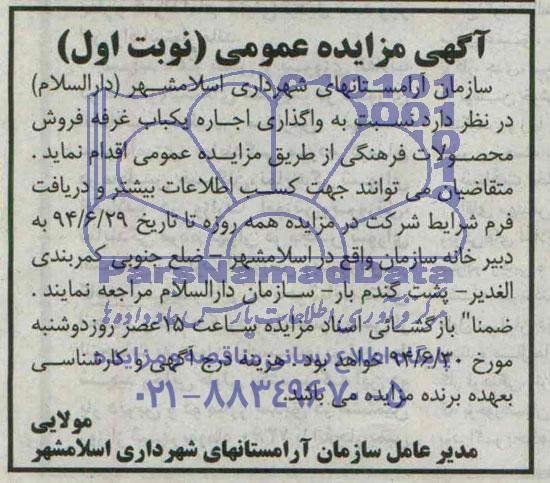 آگهی مزایده عمومی (نوبت اول)
سازمان آرامستانهای شهرداری اسلامشهر (دارالسلام)
در نظر دارد نسبت به واگذاری اجاره یکباب غرفه فروش
محصولات فرهنگی از طریق مزایده عمومی اقدام نماید .
متقاضیان می توانند جهت کسب اطلاعات بیشتر و دریافت
فرم شرایط شرکت در مزایده همه روزه تا تاریخ ۹۴/۶/۲۹ به
دبیر خانه سازمان واقع در اسلامشهر – ضلع جنوبی کمربندی
الغدیر– پشت گندم بار– سازمان دارالسلام مراجعه نمایند .
ParsNamadData
ضمنا" بازگشائی اسناد مزایده ساعت ۱۵عصر روزدوشنبه
مورخ ۹۴/۶/۳۰ خواهد بود . هزینه درج آگهی و کارشناسی
بعهده برنده مزایده می باشد.
۰۲۱-۸۸۳۴۹۶۷۰
مولایی
مدیر عامل سازمان آرامستانهای شهرداری اسلامشهر